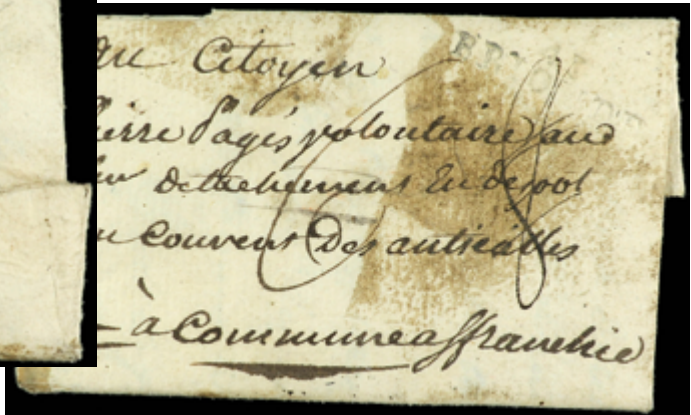 au Citoyen
ierre Pagés volontaire au
detachement En depot
couvent Des antiqailles
à Commune affranchie